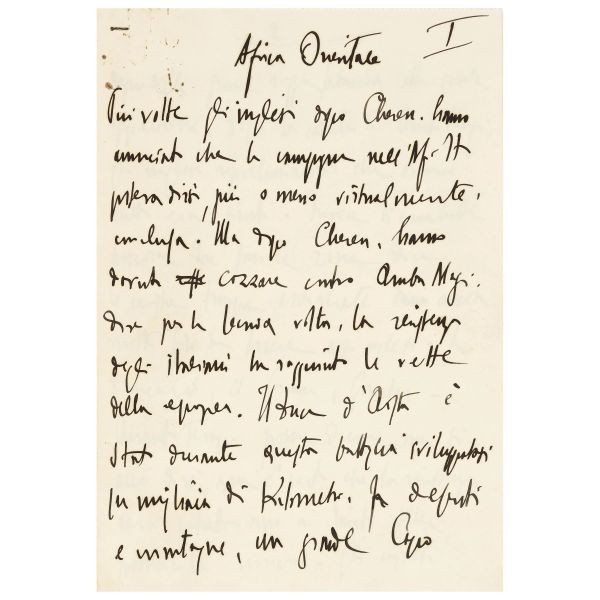 I
Africa Orientale
Più volte gli inglesi dopo Cheren, hanno
annunciato che la campagna nell'Af. It
poteva dirsi, più o meno virtualmente,
conclusa. Ma dopo Cheren, hanno
dovuto cozzare contro Amba Alagi.
dove per la seconda volta, la resistenza
degli italiani ha raggiunto le vette
della epopea. Il Duca d'Aosta è
stato durante questa battaglia sviluppatasi
su migliaia di Kilometri, fra deserti
e montagne, un grande Capo